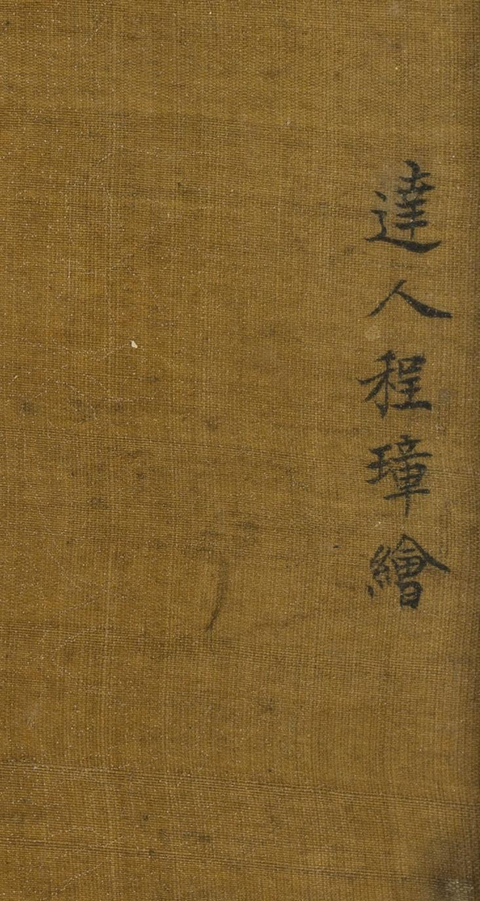 達人程璋繪